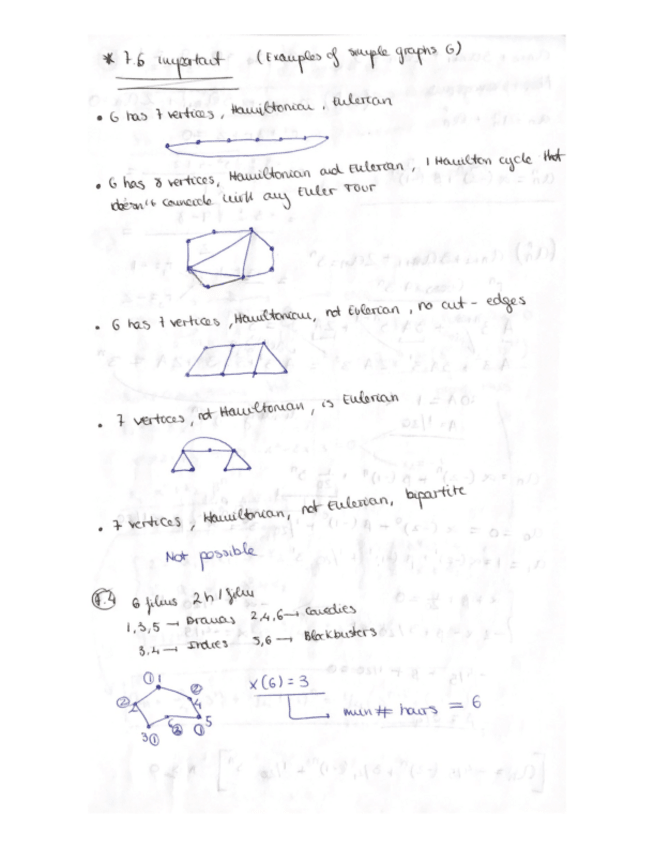 * 7.6 important (Examples of simple graphs G)
• G has 7 vertices, Hamiltonian, Eulerian
• G has 8 vertices, Hamiltonian and Eulerian, 1 Hamilton cycle that
doesn't coincide with any Euler Tour
• G has 7 vertices, Hamiltonian, not Eulerian, no cut-edges
• 7 vertices, not Hamiltonian, is Eulerian
• 7 vertices, Hamiltonian, not Eulerian, bipartite
Not possible
7.4 6 films 2h/film
1,3,5 → Dramas 2,4,6 → Comedies
3,4 → Indies 5,6 → Blockbusters
① 1
② 2
② 4
3 ①
6 ②
① 5
X(G) = 3
min # hours = 6